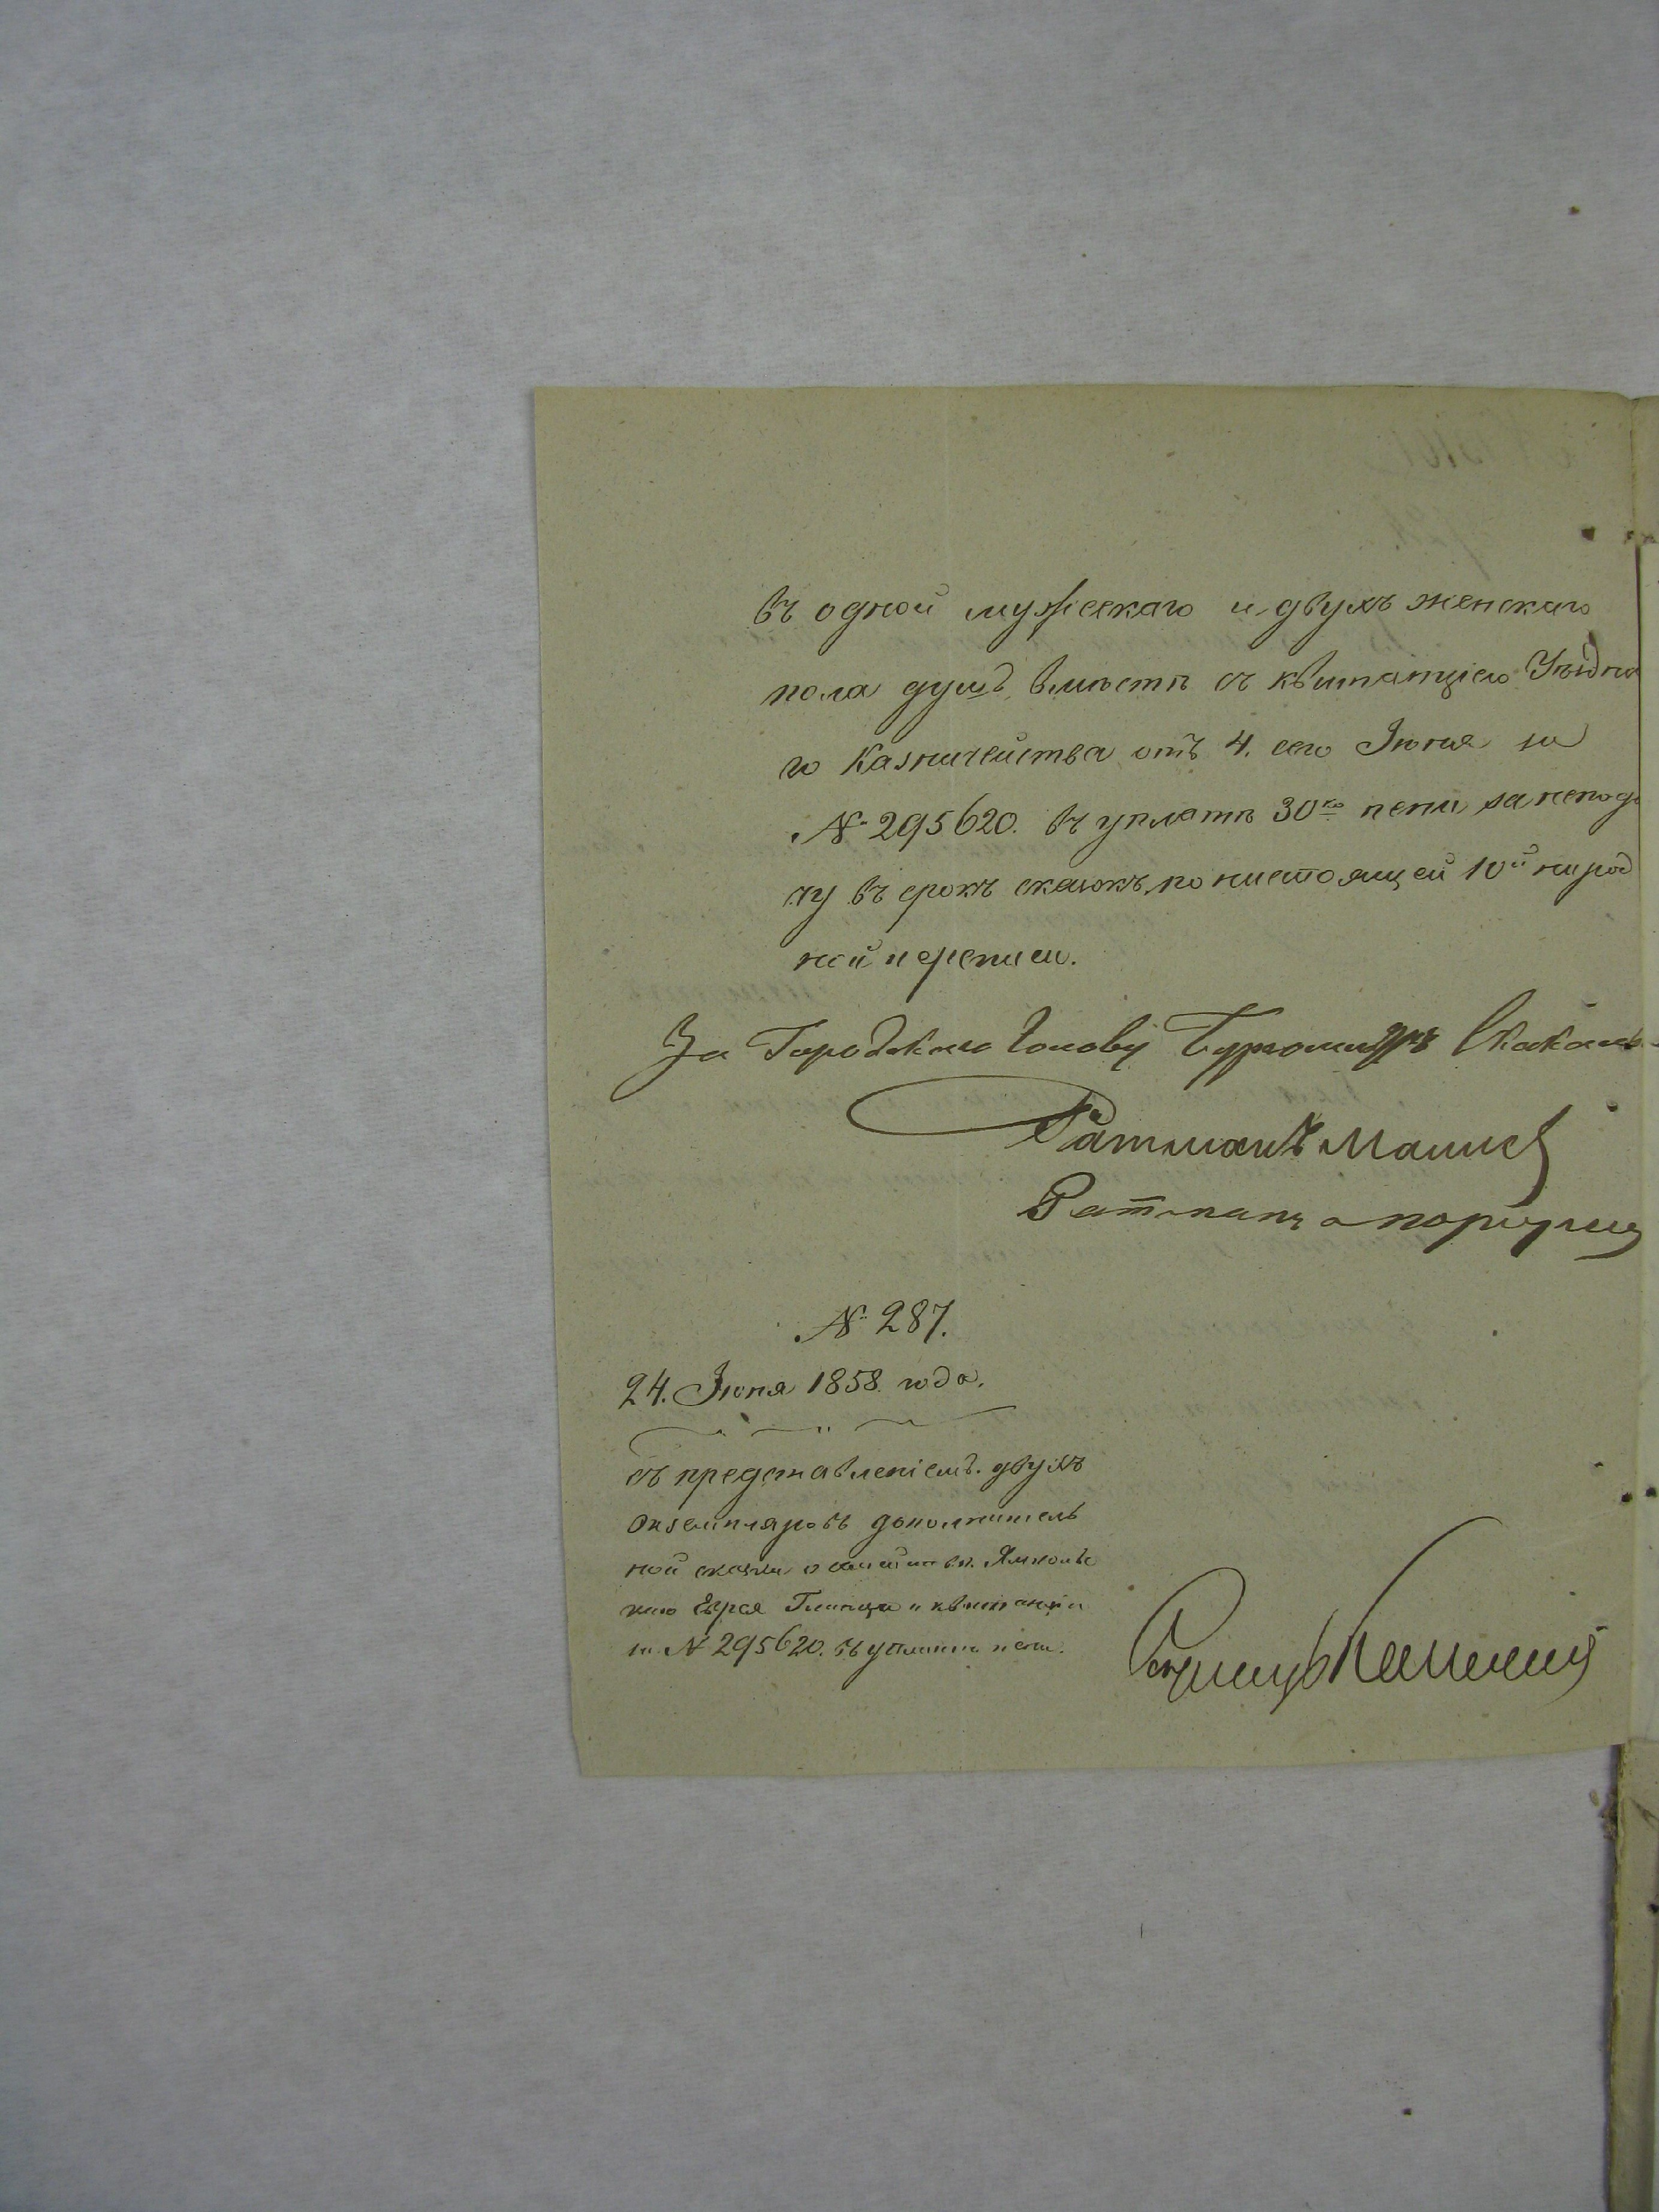 въ одной мужескаго и двухъ женскаго
пола душъ, вместѣ съ квитанціею Уѣздна
го Казначейства отъ 4. сего Іюня за
№ 295620. въ уплатѣ 30 ко пени за непода
чу въ срокъ сказокъ, по настоящей 10й народ
ной переписи.
За Городскаго Голову Бургомистръ
Ратманъ
Ратманъ
№ 287.
24. Іюня 1858. года.
съ представленіемъ. двухъ
экземпляровъ дополнитель
ной сказки о семействѣ Ямпольс
каго Еврея и квитанціи
за № 295620. въ уплатѣ пени.